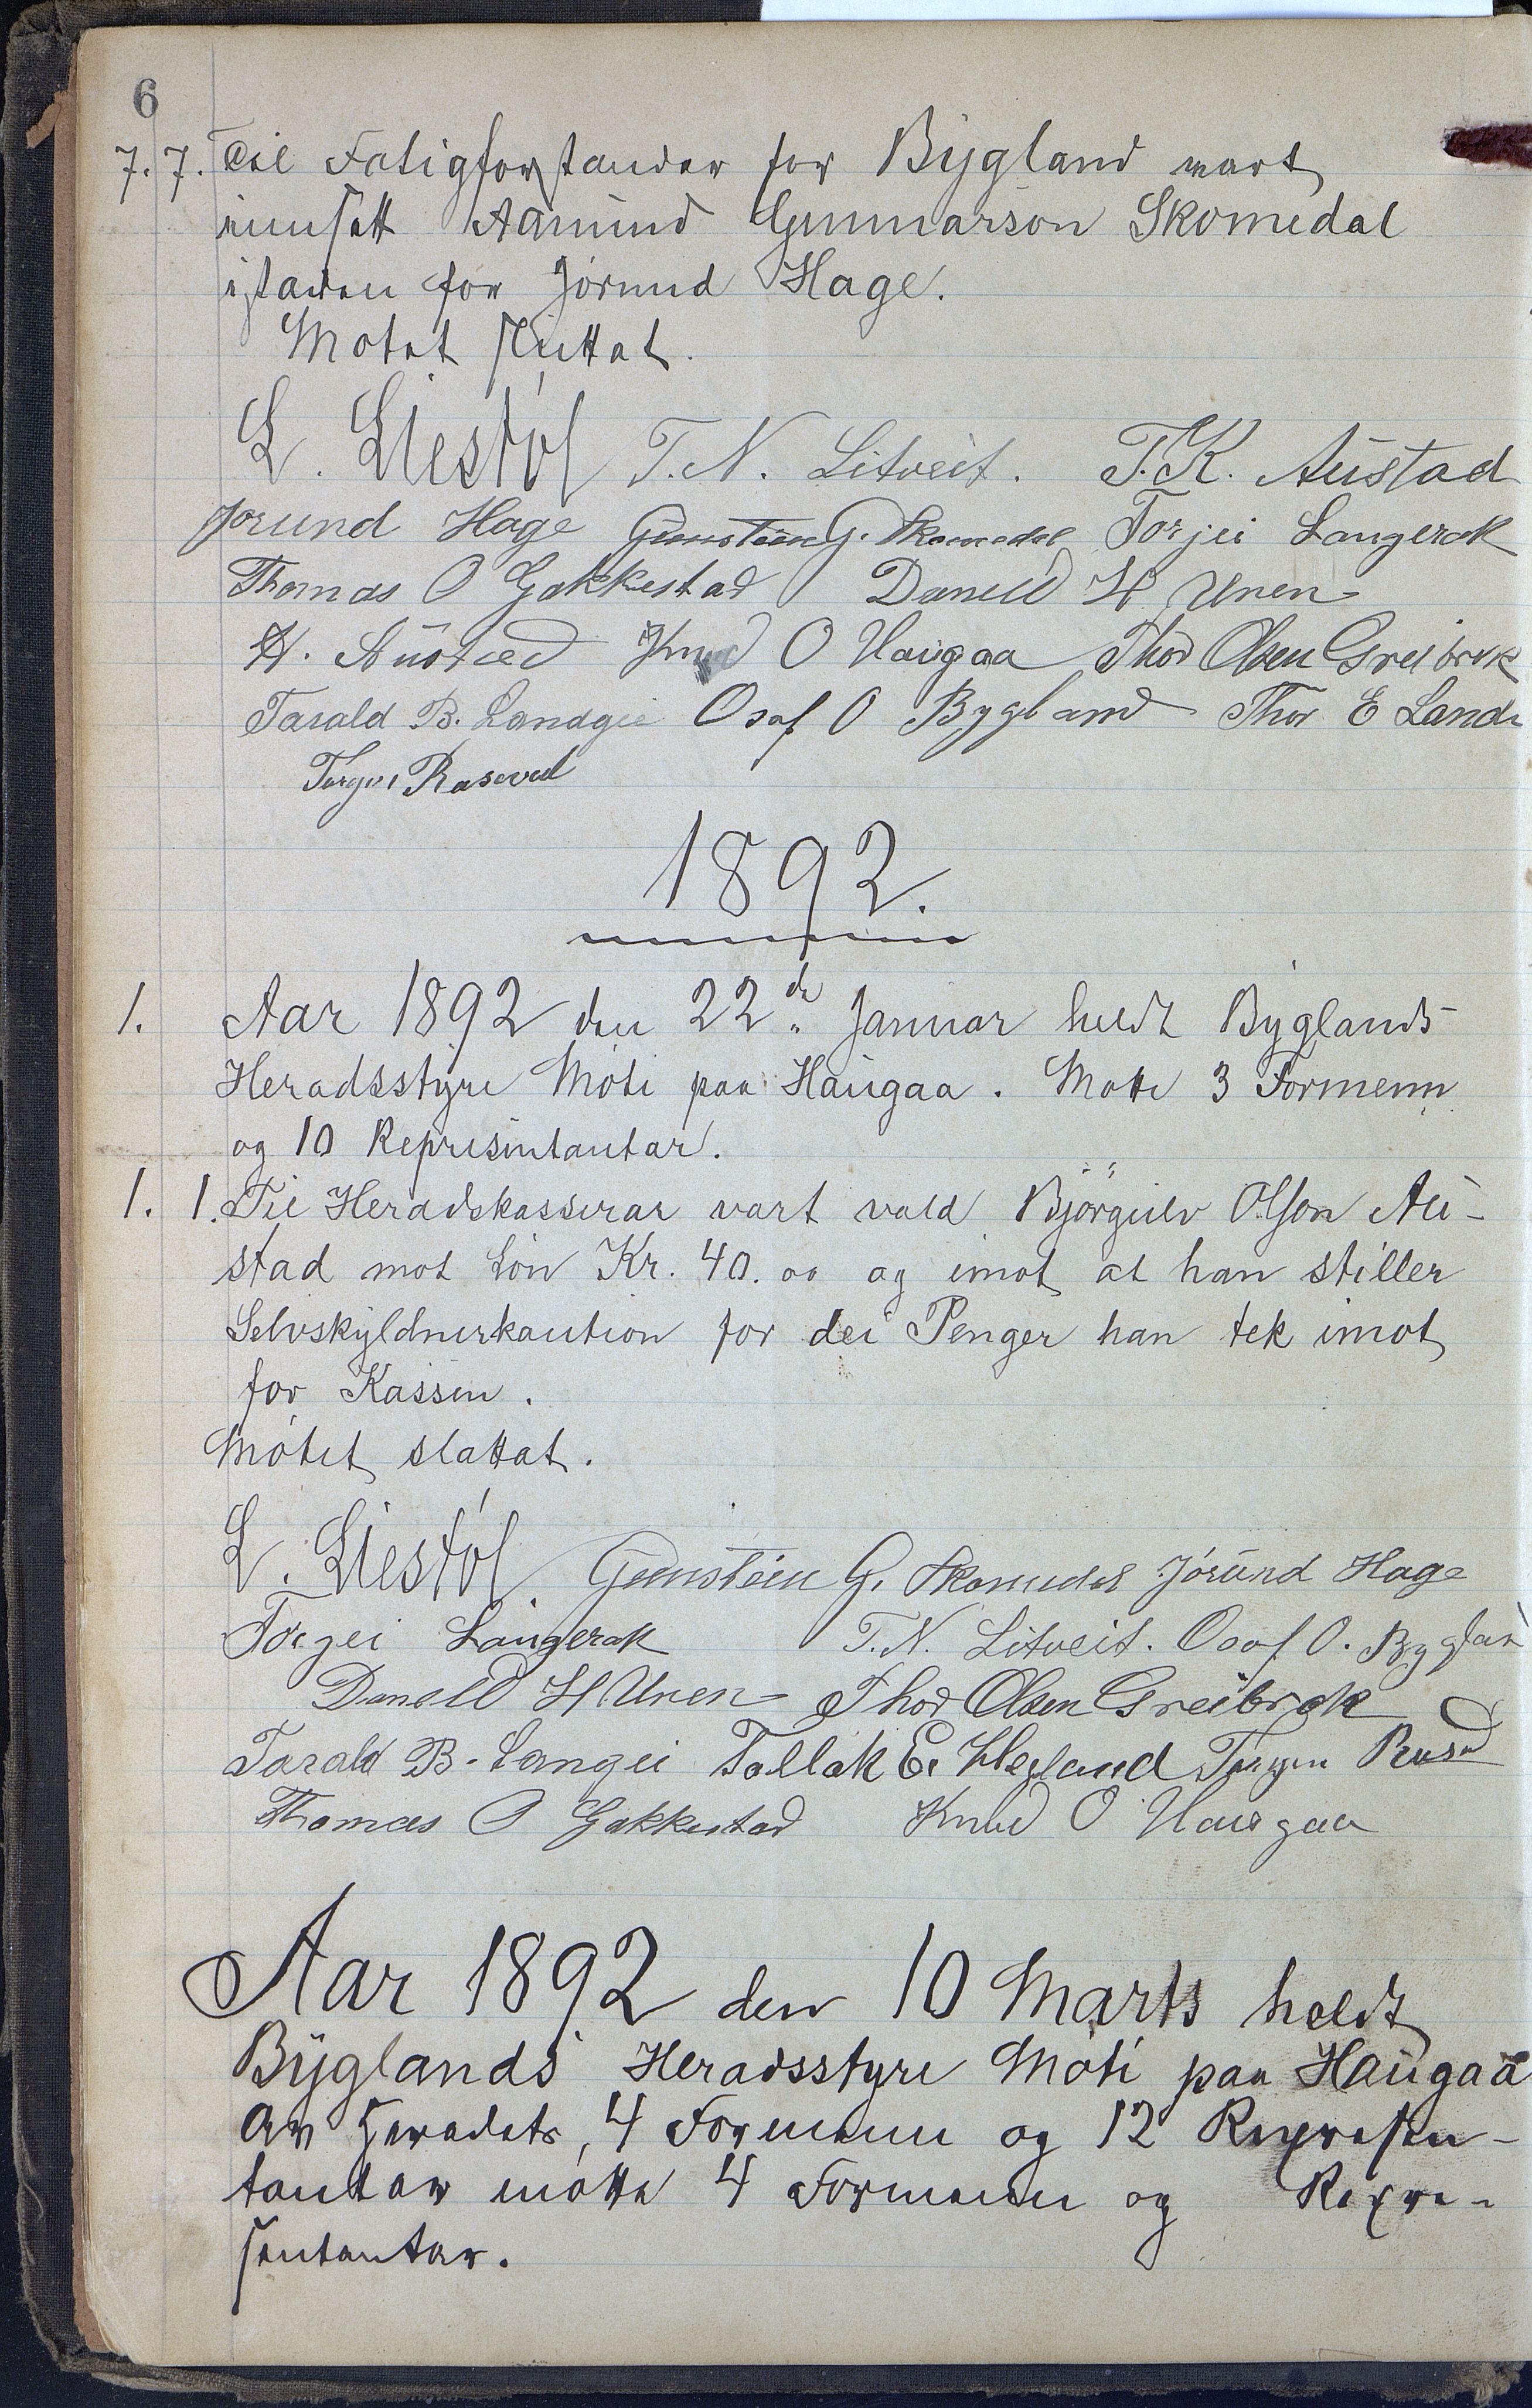 6
7. 7. Til Fatigforstandar for Bygland vart
innsatt Aamund Gunnarson Skomedal
istaden for Jórund Hage.
Motet sluttat.
L. Liestól T. N. Litveit. T. K. Austad
Jorund Hage Gunstein G. Skomedal Torjei Langerak
Thomas O Gakkestad Daneld H Unen
H. Austad Knud O Haugaa Thor Olsen Greibrok
Tarald B. Landgei Osof O Bygland Thor E Lande
Torgus Rasevad
1892.
1. Aar 1892 den 22de Januar heldt Byglands
Heradsstyre Móte paa Haugaa. Motte 3 Formenn
og 10 Representantar.
1. 1. Til Heradskasserar vart vald Björgulv Olson Au-
stad mot Lón Kr. 40.00 og imot at han stiller
Selvskyldnerkaution for dei Penger han tek imot
for Kassen.
Mótet slattat.
L. Liestól Gunstein G. Skomedal Jórund Hage
Torgei Langerak T. N. Litveit. Osof O. Bygland
Daneld H Unen Thor Olsen Greibrok
Tarald B. Langei Tallak E. Hegland Torgus Rusad
Thomas O Gakkestad Knud O Haugaa
Aar 1892 den 10 Marts heldt
Byglands Heradsstyre Móte paa Haugaa
Av Heradets, 4 Formenn og 12 Represen-
tantar mótte 4 Formenn og Repre-
sentantar.